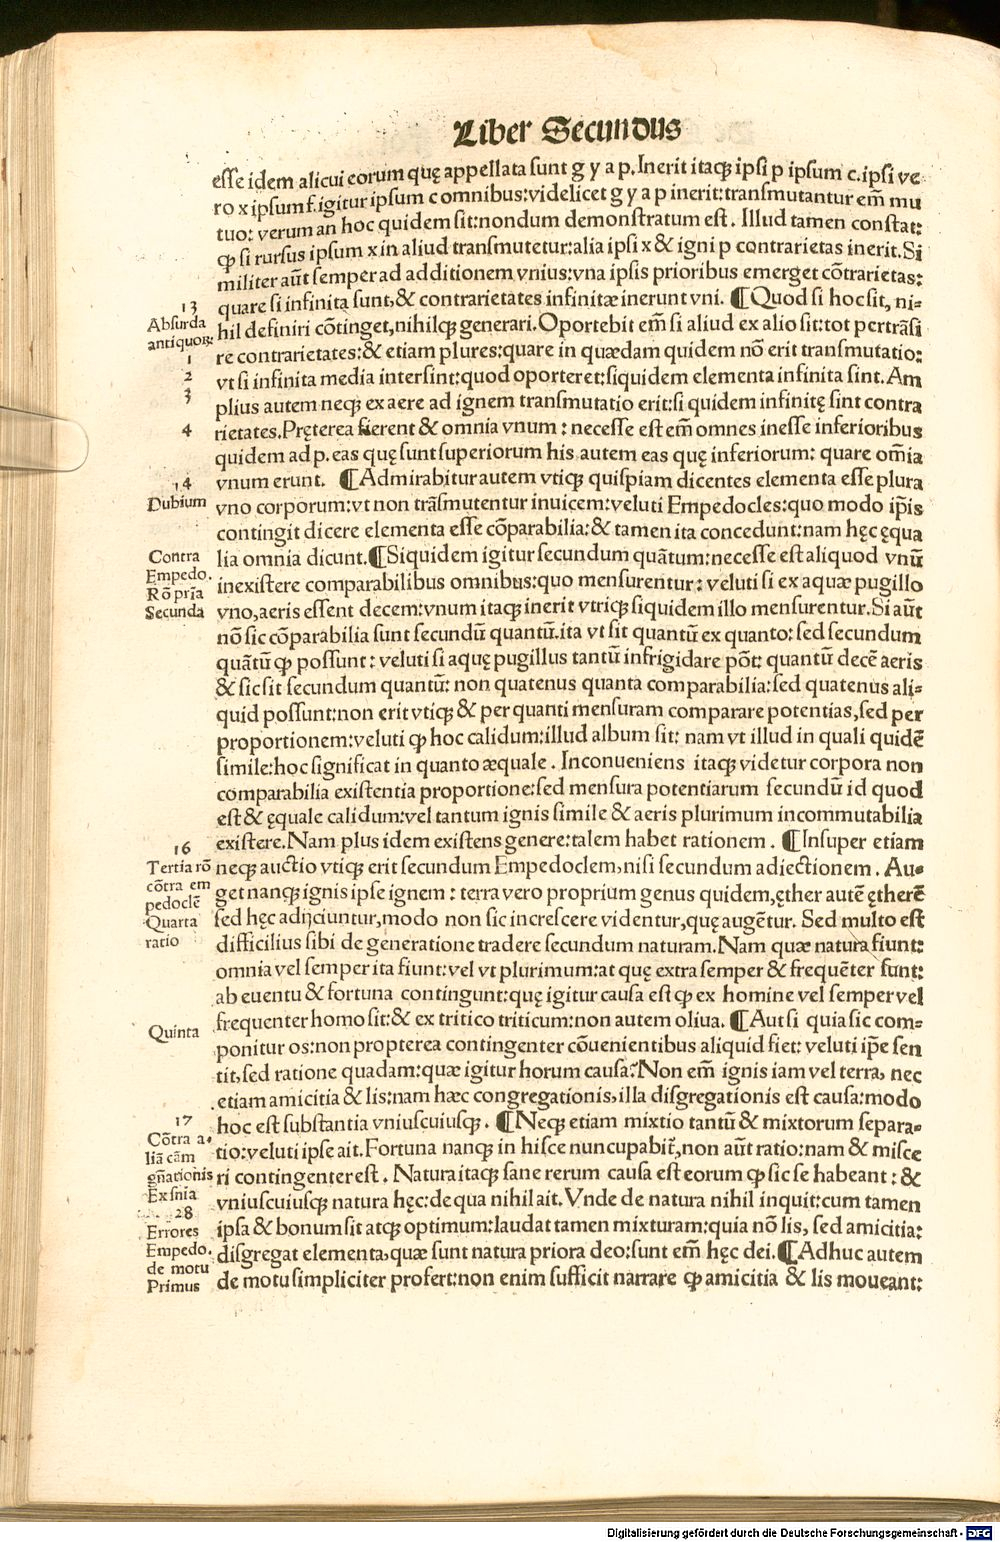 Liber Secundus
esse idem alicui eorum quę appellata sunt g y a p. Inerit itaqꝫ ipsi p ipsum c. ipsi ve
ro x ipsum f. igitur ipsum c omnibus: videlicet g y a p inerit: transmutantur em̄ mu
tuo: verum an hoc quidem sit: nondum demonstratum est. Illud tamen constat:
ꝙ si rursus ipsum x in aliud transmutetur: alia ipsi x & igni p contrarietas inerit. Si
militer aūt semper ad additionem vnius: vna ipsis prioribus emerget cōtrarietas:
quare si infinita sunt, & contrarietates infinitæ inerunt vni. ¶ Quod si hoc sit, ni-
hil definiri cōtinget, nihilqꝫ generari. Oportebit em̄ si aliud ex alio sit: tot pertrāsi
re contrarietates: & etiam plures: quare in quædam quidem nō erit transmutatio:
vt si infinita media intersint: quod oporteret: siquidem elementa infinita sint. Am
plius autem neqꝫ ex aere ad ignem transmutatio erit: si quidem infinitę sint contra
rietates. Pręterea fierent & omnia vnum: necesse est em̄ omnes inesse inferioribus
quidem ad p. eas quę sunt superiorum his autem eas quę inferiorum: quare om̄ia
vnum erunt. ¶ Admirabitur autem vtiqꝫ quispiam dicentes elementa esse plura
vno corporum: vt non trāsmutentur inuicem: veluti Empedocles: quo modo ip̄is
contingit dicere elementa esse cōparabilia: & tamen ita concedunt: nam hęc ęqua
lia omnia dicunt. ¶ Siquidem igitur secundum quātum: necesse est aliquod vnū
inexistere comparabilibus omnibus: quo mensurentur: veluti si ex aquæ pugillo
vno, aeris essent decem: vnum itaqꝫ inerit vtriqꝫ siquidem illo mensurentur. Si aūt
nō sic cōparabilia sunt secundū quantū. ita vt sit quantū ex quanto: sed secundum
quātū ꝙ possunt: veluti si aquę pugillus tantū infrigidare pōt: quantū decē aeris
& sic sit secundum quantū: non quatenus quanta comparabilia: sed quatenus ali-
quid possunt: non erit vtiqꝫ & per quanti mensuram comparare potentias, sed per
proportionem: veluti ꝙ hoc calidum: illud album sit: nam vt illud in quali quidē
simile: hoc significat in quanto æquale. Inconueniens itaqꝫ videtur corpora non
comparabilia existentia proportione: sed mensura potentiarum secundū id quod
est & ęquale calidum: vel tantum ignis simile & aeris plurimum incommutabilia
existere. Nam plus idem existens genere: talem habet rationem. ¶ Insuper etiam
neqꝫ auctio vtiqꝫ erit secundum Empedoclem, nisi secundum adiectionem. Au-
get nanqꝫ ignis ipse ignem: terra vero proprium genus quidem, ęther autē ętherē
sed hęc adijciuntur, modo non sic increscere videntur, quę augētur. Sed multo est
difficilius sibi de generatione tradere secundum naturam. Nam quæ natura fiunt:
omnia vel semper ita fiunt: vel vt plurimum: at quę extra semper & frequēter sunt:
ab euentu & fortuna contingunt: quę igitur causa est ꝙ ex homine vel semper vel
frequenter homo sit: & ex tritico triticum: non autem oliua. ¶ Aut si quia sic com-
ponitur os: non propterea contingenter cōuenientibus aliquid fiet: veluti ip̄e sen
tit, sed ratione quadam: quæ igitur horum causa? Non em̄ ignis iam vel terra, nec
etiam amicitia & lis: nam hæc congregationis, illa disgregationis est causa: modo
hoc est substantia vniuscuiusqꝫ. ¶ Neqꝫ etiam mixtio tantū & mixtorum separa-
tio: veluti ipse ait. Fortuna nanqꝫ in hisce nuncupabit̄, non aūt ratio: nam & misce
ri contingenter est. Natura itaqꝫ sane rerum causa est eorum ꝙ sic se habeant: &
vniuscuiusqꝫ natura hęc: de qua nihil ait. Vnde de natura nihil inquit: cum tamen
ipsa & bonum sit atqꝫ optimum: laudat tamen mixturam: quia nō lis, sed amicitia:
disgregat elementa, quæ sunt natura priora deo: sunt em̄ hęc dei. ¶ Adhuc autem
de motu simpliciter profert: non enim sufficit narrare ꝙ amicitia & lis moueant:
13
Absurda
antiquoꝝ
1
2
3
4
14
Dubium
Contra
Empedo.
Rō pr̄ia
Secunda
16
Tertia rō
cōtra em
pedoclē
Quarta
ratio
Quinta
17
Cōtra a-
liā cām
gn̄ationis
Ex sn̄ia
28
Errores
Empedo.
de motu
Primus
Digitalisierung gefördert durch die Deutsche Forschungsgemeinschaft - DFG